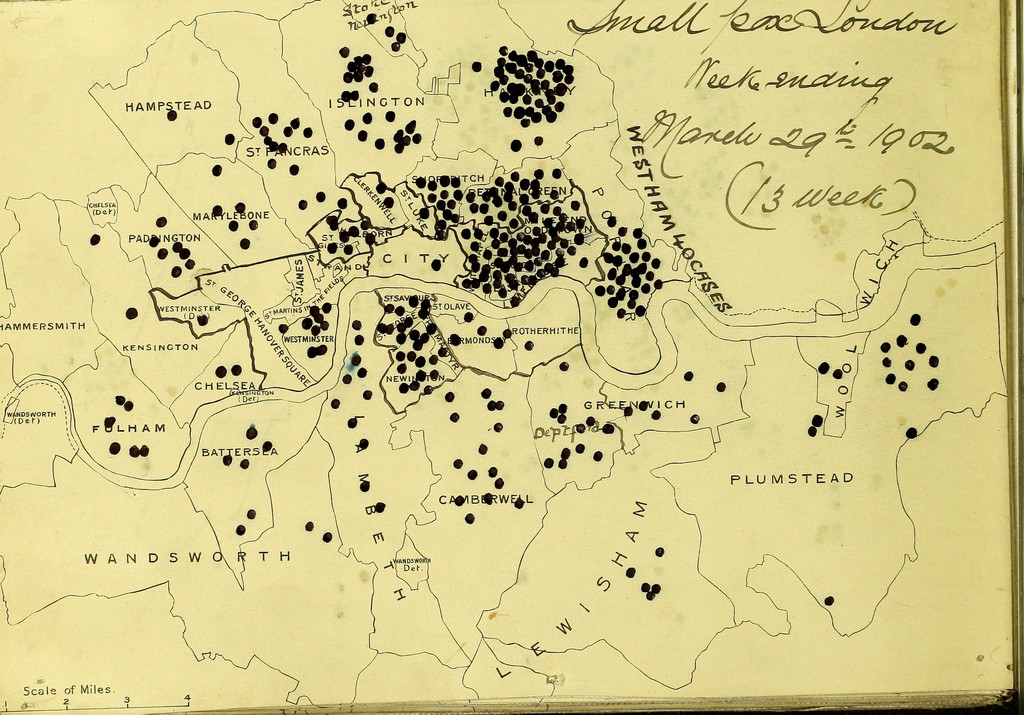 Small pox London
Week ending
March 29th 1902
(13 Week)
Stoke
Newington
HAMPSTEAD
ISLINGTON
HACKNEY
ST PANCRAS
WEST HAM LOCHSES
SHOREDITCH
BETHNAL GREEN
CLERKENWELL
ST LUKE
CHELSEA
(Det)
MARYLEBONE
PADDINGTON
HOLBORN
ST GILES
STRAND
CITY
MILE END
OLD TOWN
POPLAR
ST JAMES
ST MARTINS IN THE FIELDS
ST GEORGE HANOVER SQUARE
WESTMINSTER
(Det)
WESTMINSTER
ST SAVIOURS
ST OLAVE
BERMONDSEY
ROTHERHITHE
NEWINGTON
HAMMERSMITH
KENSINGTON
CHELSEA
KENSINGTON
(Det)
WOOLWICH
WOOL
WANDSWORTH
(Det)
FULHAM
BATTERSEA
GREENWICH
Deptford
LAMBETH
CAMBERWELL
PLUMSTEAD
WANDSWORTH
WANDSWORTH
Det.
LEWISHAM
Scale of Miles.
1 2 3 4